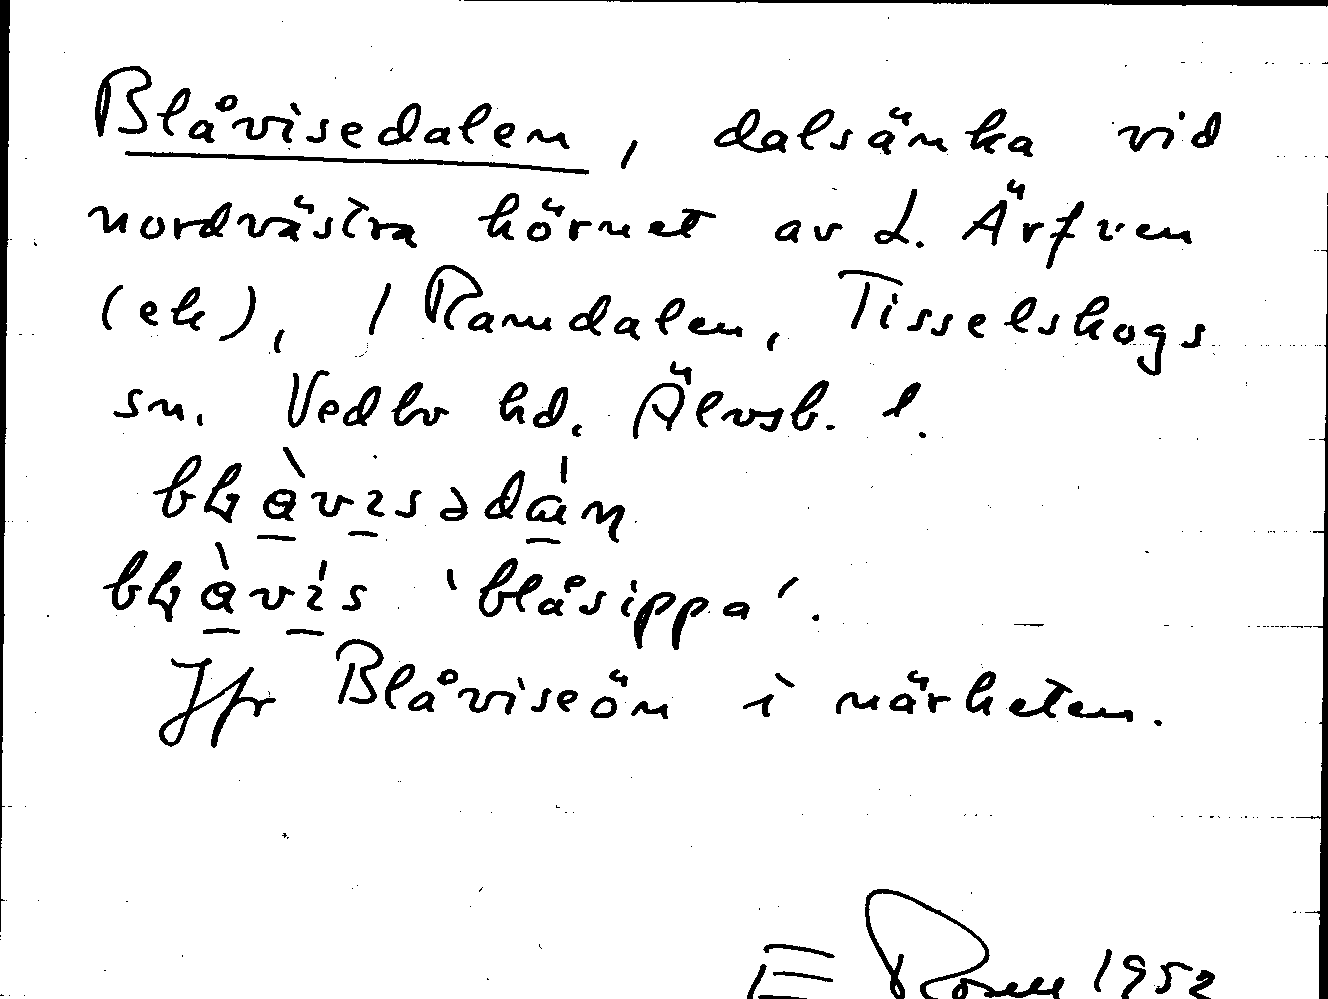 Blåvisedalen, dalsänka vid
nordvästra hörnet av L. Ärfven
(ek), / Ramdalen, Tisselskogs
sn. Vedbo hd. Älvsb. l.
'blåsippa'.
Jfr Blåviseön i närheten.
E Rosell 1952